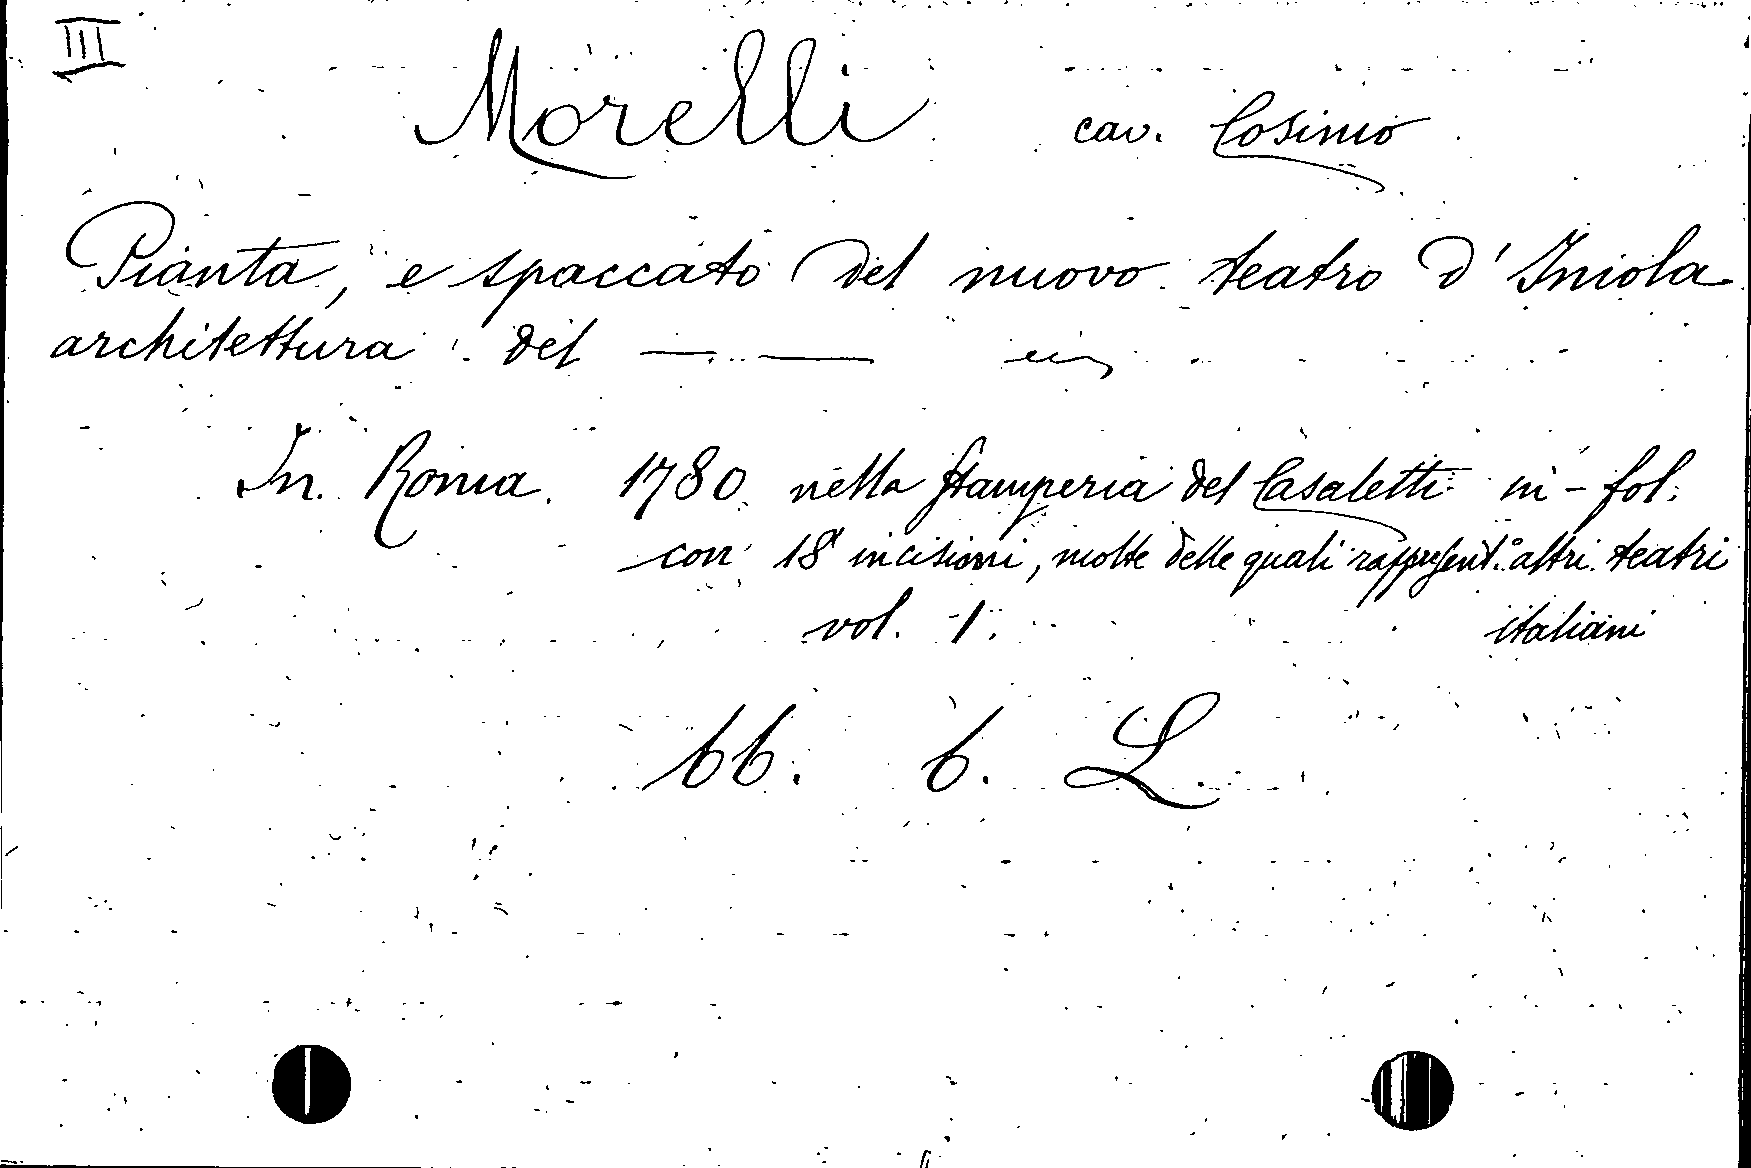 III
Morelli cav. Cosimo
Pianta, e spaccato del nuovo teatro d' Imola
architettura del — —
In Roma. 1780 nella stamperia del Casaletti in-fol.
con 18 incisioni, molte delle quali rappresent.º altri teatri
vol. 1. italiani
66. 6. L.